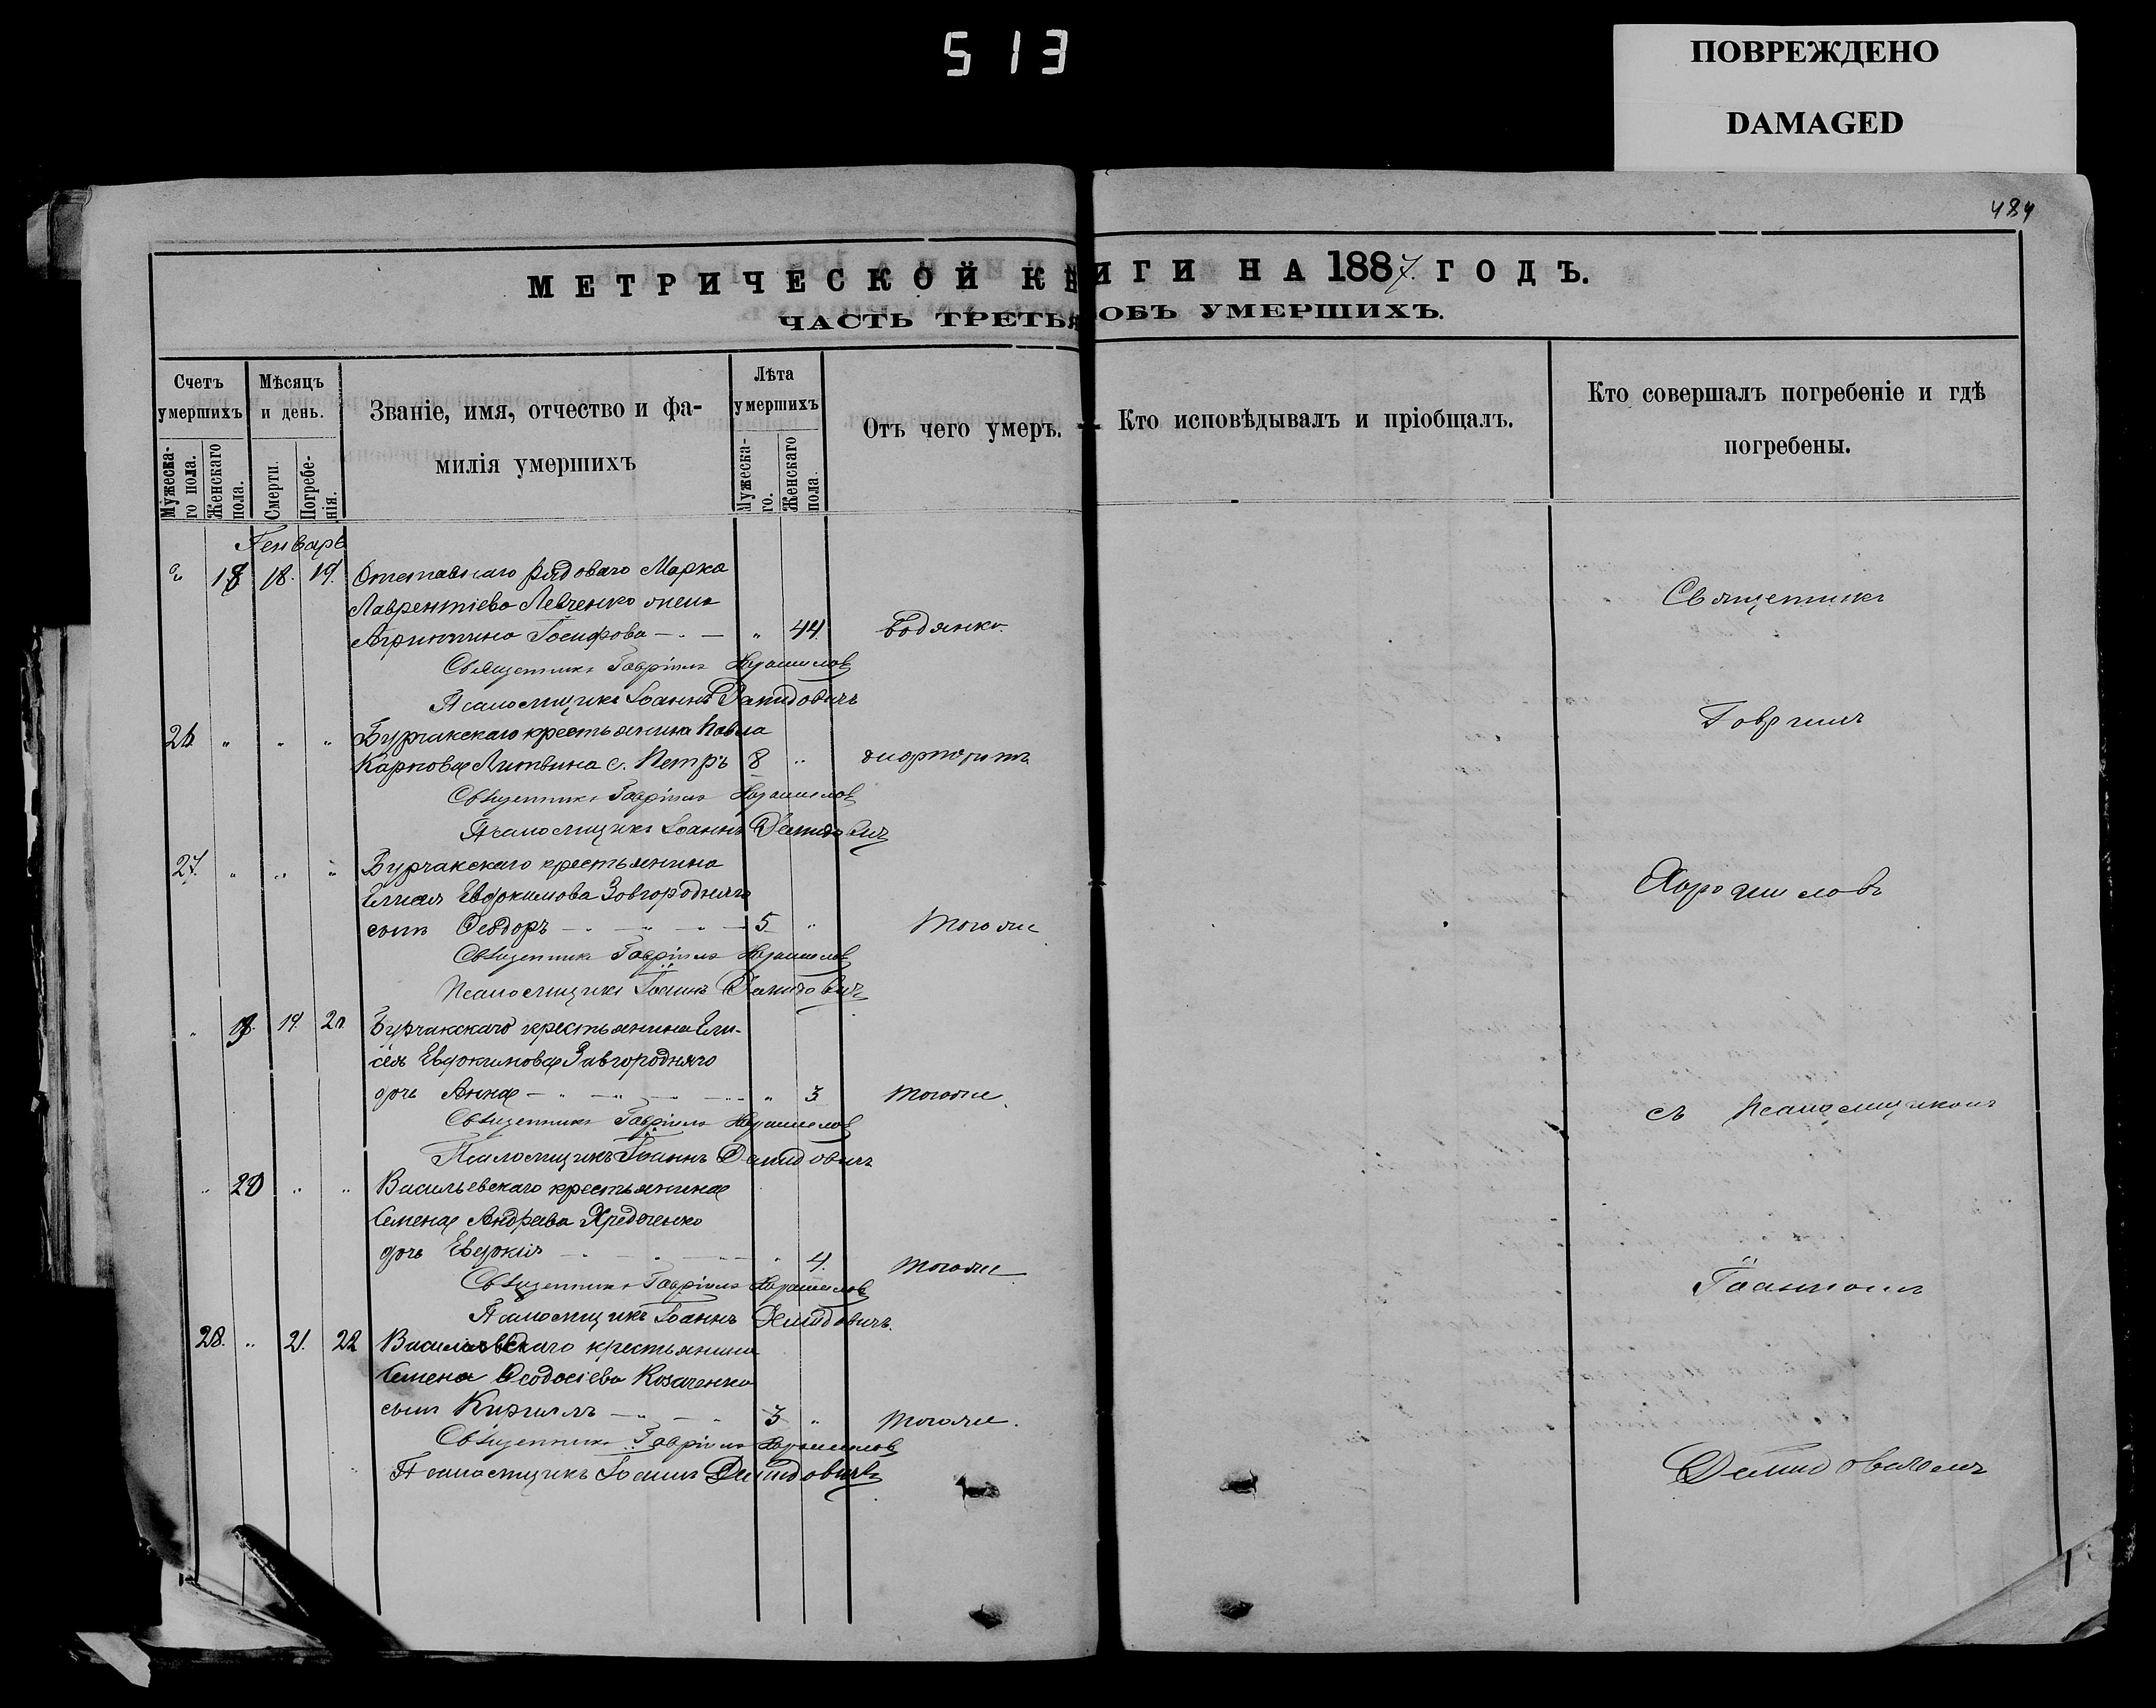 513
ПОВРЕЖДЕНО
DAMAGED
484
МЕТРИЧЕСКОЙ КНИГИ НА 1887. ГОДЪ.
ЧАСТЬ ТРЕТЬЯ ОБЪ УМЕРШИХЪ.
Счетъ умершихъ
Мужеска-го пола.
Женскаго пола.
Мѣсяцъ и день.
Смерти.
Погребе-нія.
Званіе, имя, отчество и фа-
милія умершихъ
Лѣта умершихъ
Мужеска-го.
Женскаго пола.
Отъ чего умеръ.
Кто исповѣдывалъ и пріобщалъ.
Кто совершалъ погребеніе и гдѣ
погребены.
Генварь
18 18. 19. Отставнаго рядоваго Марка
Лаврентіева Левченко жена
Агриппина Іосифова — „ — „ 44. Водянка.
Священникъ Гавріилъ Хорошилов
Псаломщикъ Іоаннъ Демидовичъ
26 „ „ „ Бурчакскаго крестьянина Павла
Карпова Литвина с. Петръ 8 „ дифтеритъ
Священникъ Гавріилъ Хорошилов
Псаломщикъ Іоаннъ Демидович
27. „ „ „ Бурчакскаго крестьянина
Елисея Евдокимова Завгородняго
сынъ Феодоръ — „ — „ — 5 „ тогоже
Священникъ Гавріилъ Хорошилов
Псаломщикъ Іоаннъ Демидович
„ 19. 19. 20 Бурчакскаго крестьянина Ели-
сея Евдокимова Завгородняго
дочь Анна — „ — „ — „ 3 тогоже.
Священникъ Гавріилъ Хорошилов
Псаломщикъ Іоаннъ Демидовичъ
„ 20 „ „ Васильевскаго крестьянина
Семена Андреева
дочь Евдокія — „ — „ 4. тогоже
Священникъ Гавріилъ Хорошилов
Псаломщикъ Іоаннъ Демидовичъ.
28. „ 21. 22 Васильевскаго крестьянина
Семена Феодосіева Козаченко
сынъ Кириллъ — „ — „ 3 „ тогоже.
Священникъ Гавріилъ Хорошилов
Псаломщикъ Іоаннъ Демидовичъ
Священникъ
Гавріилъ
Хорошиловъ
съ Псаломщикомъ
Іоанномъ
Демидовичемъ